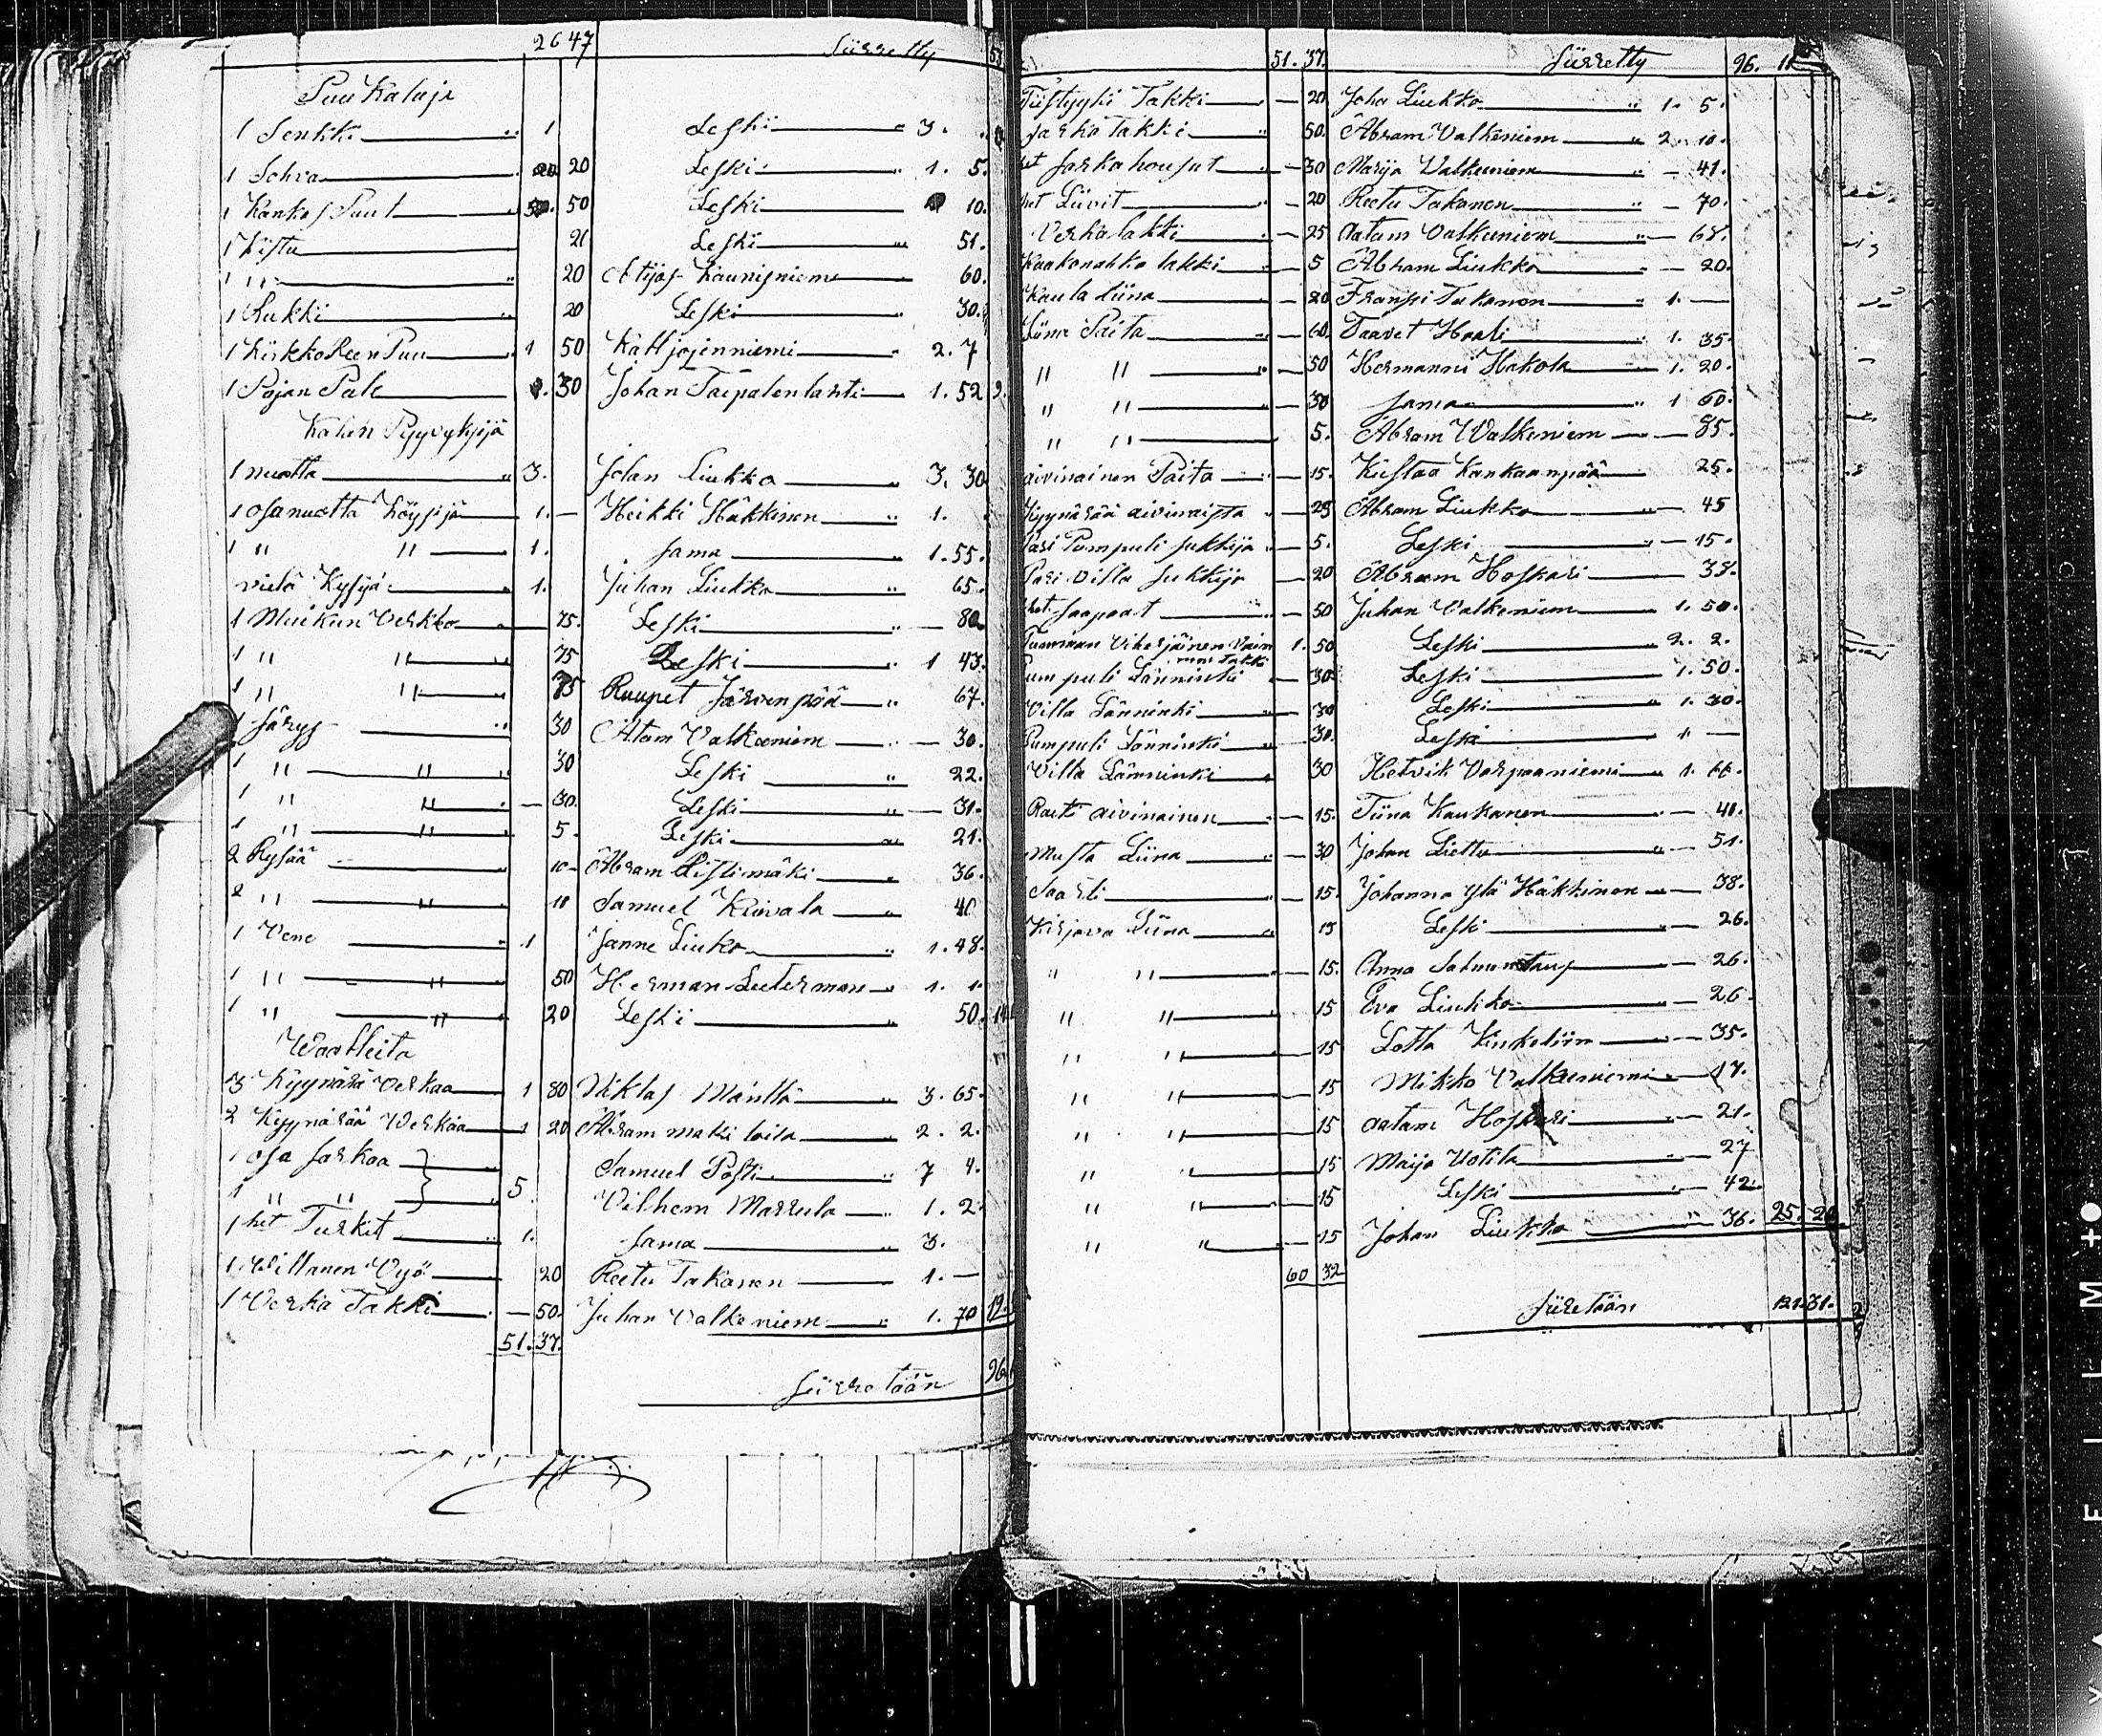 26 47 Siirretty
Puu Kaluja
1 Senkki " 1 Leski " 3.
1 Sohva 20 Leski " 1. 5.
1 Kankas Puut 50 Leski 10.
1 Kistu 21 Leski " 51.
1 " " 20 Atijas Kaunisniemi 60.
1 Rukki " 20 Leski " 30.
1 Kirkko Reen Puu 1 50 Katt jojinniemi " 2. 7
1 Pojan Pale 30 Johan Taipalenlahti 1. 52
Kalan Pyyvyksijä
1 nuotta " 3. Johan Liukko " 3. 30
1 osa nuotta Köysijä 1. — Heikki Häkkinen " 1.
1 " " 1. sama " 1. 55.
vielä Kysyjä " 1. Juhan Liukko " 65.
1 Muikun Verkko 75. Leski — 80.
1 " " 75 Leski " 1 43.
1 " " 75 Ruupet Järvenpää " 67.
1 Särys " 30 Atam Valkeniem " — 30.
1 " " 30 Leski " 22.
1 " " — 30. Leski — 31.
1 " " 5. Leski " 21.
2 Rysää " 10 Abram Ristimäki " 36.
2 " " 11 Samuel Kiivala " 40
1 Vene " 1 Janne Liuko " 1. 48.
1 " " 50 Herman Leeterman " 1. 1.
1 " " 20 Leski " 50.
Waatteita
3 Kyynärä Verkaa 1 80 Niklas Mänttä " 3. 65.
2 Kyynärää Werkaa 1 20 Abram maksi toila " 2. 2.
1 osa sarkaa Samuel Posti " 7 4.
1 " " 5. Vilhem Marrula " 1. 2.
1 het Turkit " 1. sama " 3.
1 Willanen Vyö 20 Reetu Takanen 1. —
1 Verka Takki — 50. Juhan Valkeniem " 1. 70 19.
51. 37.
Siirretään 96
51. 37. Siirretty 96. 11
Takki — 20 Joha Liukko " 1. 5.
sarka Takki " 50. Abram Valkeniem " 2. 10.
et sarkahousut — 30 Marija Valkeniem " — 41.
Liivit — 20 Reetu Takanen " — 70.
Verkalakki — 25 Aatam Valkeniem " — 68.
lakki — 5 Abram Liukko " — 20.
Kaula Liina — 20 Franssi Takanen " 1. —
Liina Paita — 60. Taavet Haali " 1. 35.
" " — 50 Hermanni Hakola " 1. 20.
" " — 30 sama " 1 60.
" " 5. Abram Walkeniem — 85.
aivinainen Paita — 15. Kustaa Kankaanpää 25.
Kyynärää aivinaista " — 25 Abram Liukko " — 45
Pari Pumpuli sukkija " — 5. Leski " — 15.
Pari villa sukkija — 20 Abram Hoskari — 38.
het saapaat " — 50 Juhan Valkeniem " 1. 50.
Tumman Viherjäinen Vaim 1. 50 Leski " 2. 2.
mm takki
umpuli Länninki — 30 Leski 1. 50.
Villa Länninki " — 30 Leski " 1. 30.
Pumpuli Länninki " — 30. Leski " 1 —
Villa Länninki 30 Hetvik Varpaaniemi " 1. 66.
aivinainen " — 15. Tiina Kaukanen " — 40.
Musta Liina " — 30 Johan Liettu " — 51.
Saarli " — 15. Johanna Ylä Häkkinen " — 38.
Kirjava Liina " 15 Leski " — 26.
" " — 15. Anna " — 26.
" " 15 Eva Liukko " — 26.
" " — 15 Lotta " — 35.
" " 15 Mikko Valkeeniemi " — 17.
" " 15 Aatam Hoskari " — 21.
" " 15 Maija Uotila " — 27
" " — 15 Leski " — 42.
" " — 15 Johan Liukko " 36. 25. 20
60 32
Siiretään 121. 31.
F I L M